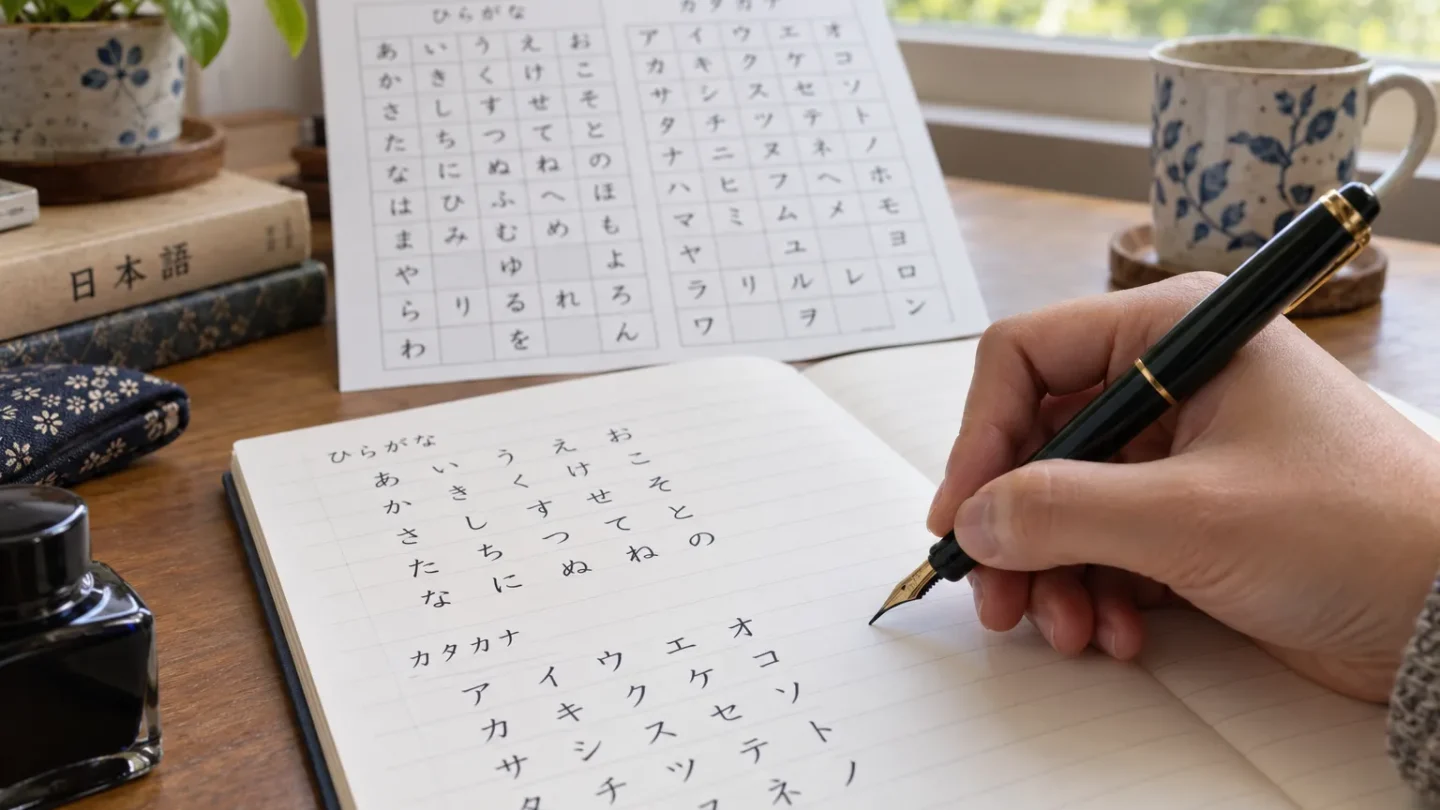 日本語
ひらがな
あ い う え お
か き く け こ
さ し す せ そ
た ち つ て と
な に ぬ ね の
は ひ ふ へ ほ
ま み む め も
や ゆ よ
ら り る れ ろ
わ を ん
カタカナ
ア イ ウ エ オ
カ キ ク ケ コ
サ シ ス セ ソ
タ チ ツ テ ト
ナ ニ ヌ ネ ノ
ハ ヒ フ ヘ ホ
マ ミ ム メ モ
ヤ ユ ヨ
ラ リ ル レ ロ
ワ ヲ ン
ひらがな
あ い う え お
か き く け こ
さ し す せ そ
た ち つ て と
な に ぬ ね の
カタカナ
ア イ ウ エ オ
カ キ ク ケ コ
サ シ ス セ ソ
タ チ ツ テ ト
ネ ノ